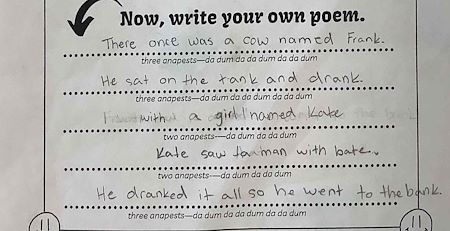 Now, write your own poem.
There once was a cow named Frank.
three anapests—da dum da da dum da da dum
He sat on the tank and drank.
three anapests—da dum da da dum da da dum
with a girl named Kate
two anapests—da dum da da dum
Kate saw man with bate.
two anapests—da dum da da dum
He dranked it all so he went to the bank.
three anapests—da dum da da dum da da dum
11
11